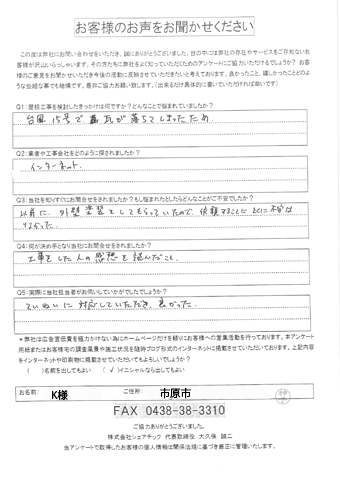 お客様のお声をお聞かせください
この度は弊社にお問い合わせをいただき、誠にありがとうございました。世の中には弊社の存在やサービスをご存知ないお
客様が沢山いらっしゃいます。その方たちに弊社をよく知っていただくためのアンケートにご協力いただけるでしょうか？お
客様のご意見をお聞かせいただき今後の活動に反映させていただきたいと考えております。良かったこと、嬉しかったことどの
ような些細な事でも結構です。是非ご協力お願い致します。（出来るだけ具体的に書いていただければ幸いです）
Q1：屋根工事を検討したきっかけは何ですか？どんなことで悩まれていましたか？
台風15号で 瓦が落ちてしまったため。
Q2：業者や工事会社をどのように探されましたか？
インターネット
Q3：当社を知りすぐにお問合せをされましたか？もし悩まれたとしたらどんなことがご不安でしたか？
以前に、外壁塗装をしてもらっていたので、依頼することにとくに不安は
なかった。
Q4：何が決め手となり当社にお問合せをされましたか？
工事をした人の感想を読んだこと。
Q5：実際に当社担当者がお伺いしていかがでしたでしょうか？
ていねいに対応していただき、良かった。
＊弊社は広告宣伝費を極力かけない為にホームページだけを頼りにお客様への営業活動を行っております。本アンケート
用紙またはお客様宅の調査風景や施工状況を随時ブログ形式のインターネットに掲載させていただいております。上記内容
をインターネットや印刷物に掲載させていただいてもよろしいでしょうか？
（　）名前を出してもよい　（✓）イニシャルならよい
お名前：　K様　ご住所：　市原市
FAX 0438-38-3310
ご協力ありがとうございました。
株式会社シェアテック 代表取締役 大久保 誠二
当アンケートで取得したお客様の個人情報は関係法規に基づき厳正に管理いたします。